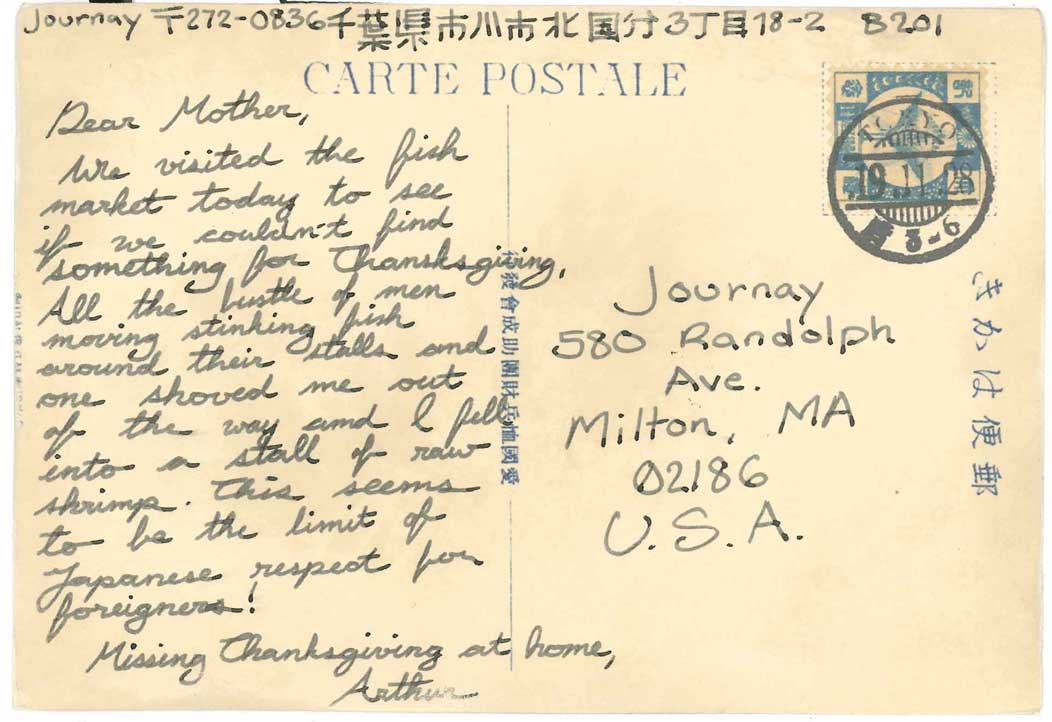 Journay 〒272-0836千葉県市川市北国分3丁目18-2 B201
CARTE POSTALE
Dear Mother,
We visited the fish
market today to see
if we couldn't find
something for Thansksgiving.
All the bustle of men
moving stinking fish
around their stalls and
one shoved me out
of the way and I fell
into a stall of raw
shrimp. This seems
to be the limit of
Japanese respect for
foreigners!
Missing Thanksgiving at home,
Arthur
發會成助團財兵恤國愛
TOKYO
19.11.28
3-6
Journay
580 Randolph
Ave.
Milton, MA
02186
U.S.A.
きかは便郵